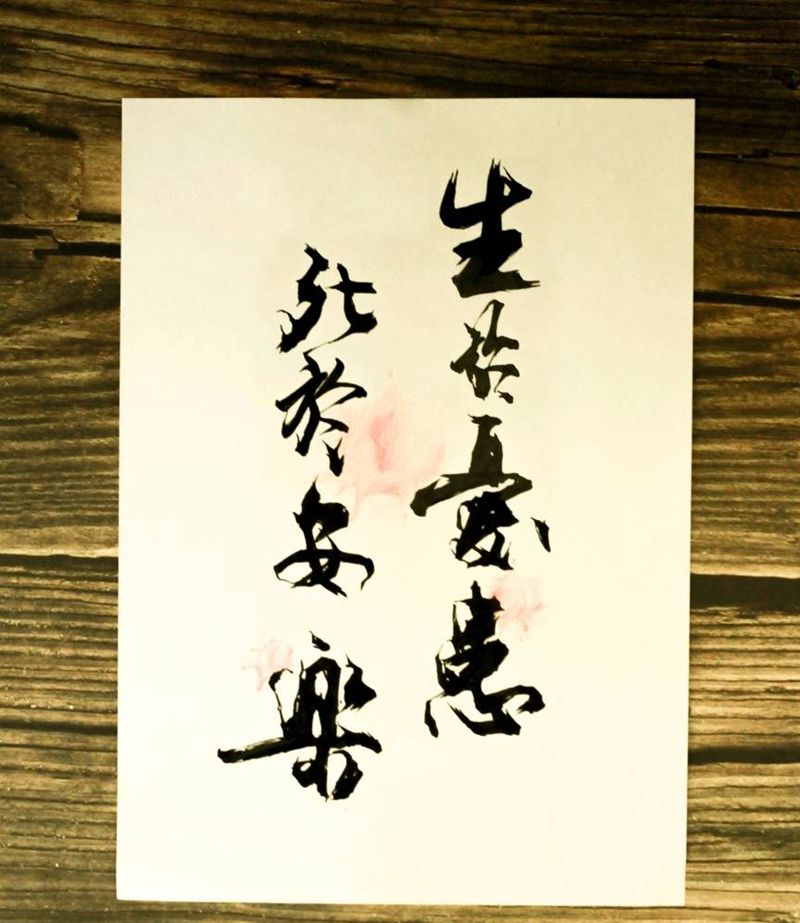 生於憂患
死於安樂